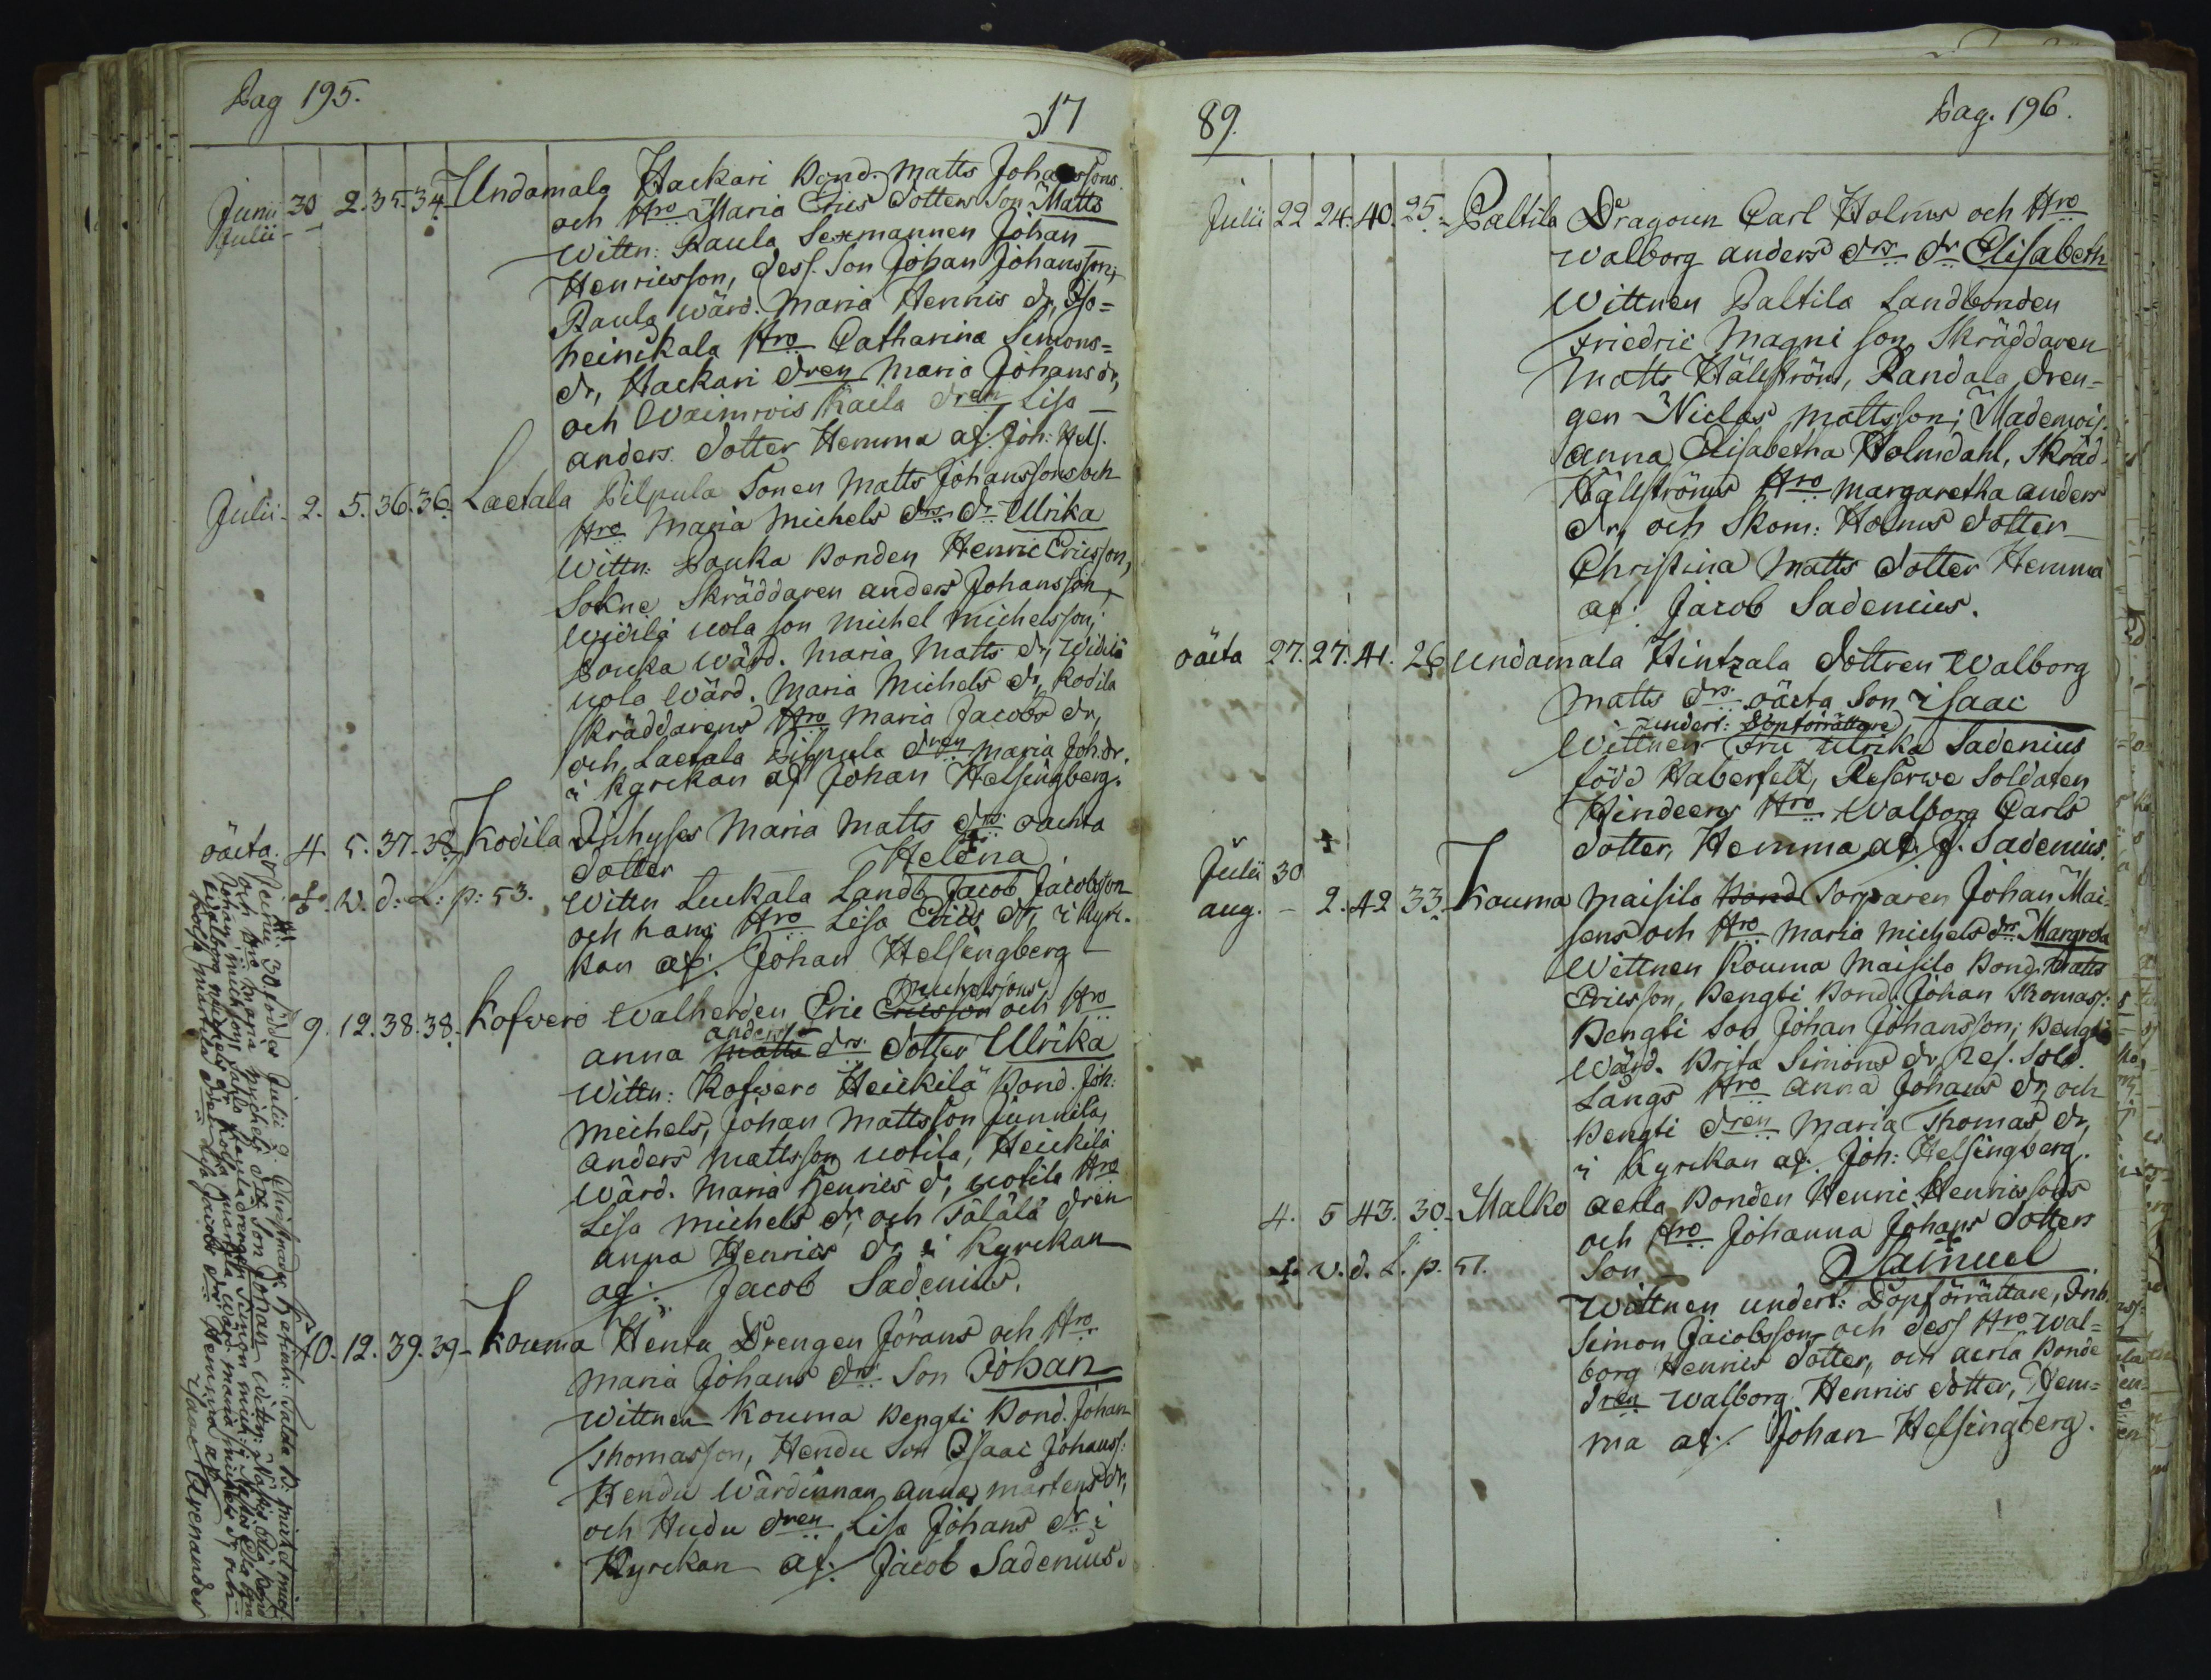 Pag 195.
17
Junii 30 2. 35. 34. Undamala Hackari Bond. Matts Johanssons
Julii - -
och Hro Maria Erics Dotters Son Matts
Wittn: Paula Sexmannen Johan
Henricsson, dess Son Johan Johansson,
Paula wärd. Maria Henrics dr, Iso=
heinikala Hro Catharina Simons=
dr, Hackari dren Maria Johans dr,
och Kaila dren Lisa
anders. dotter Hemma af: Joh: Hels.
Julii - 2. 5. 36. 36. Laetala Pilpula Sonen Matts Johanssons och
Hro Maria Michels drs dr Ulrika
Wittn: Pouka Bonden Henric Ericsson,
Sokne Skräddaren anders Johansson,
Widilä uola son Michel Michelsson,
Pouka wärd. Maria Matts dr, Widilä
uola wärd. Maria Michels dr, Kodila
skräddarens Hro Maria Jacobs dr,
och Laetala Pilpula dren Maria Joh. dr.
i kyrckan af Johan Helsingberg.
oäcta 4. 5. 37. 38. Kodila Inhyses Maria Matts drs oächta
dotter Helena
✝. v. d: L: p: 53.
Wittn Luckala Landb. Jacob Jacobsson
och hans Hro Lisa Erics dr, i kyrc-
kan af: Johan Helsingberg
9. 12. 38. 38. Kofvero Walherden Eric Ericsson Michelssons och Hro
anna Matts anders drs dotter Ulrika
Wittn: Kofvero Heickilä Bond. Joh:
Michels, Johan Mattsson Junnila,
anders Mattsson uotila, Heickilä
wärd. Maria Henrics dr, uotila Hro
Lisa Michels dr, och Tälälä dren
anna Henrics dr, i kyrckan
af: Jacob Sadenius.
10. 12. 39. 39. Kouma Henta Drengen Jörans och Hro
Maria Johans drs Son Johan
Wittnen Kouma Bengti Bond. Johan
Thomasson, Hendu Son Isaac Johanss:
Hendu Wärdinnan anna Mårtens dr,
och Hudu dren Lisa Johans dr i
Kyrckan af: Jacob Sadenius.
Junii 30 föddes Julii 9 Christnades
och Hro Maria Michels drs Son Johan
Isaac Grenander
89.
Pag. 196.
Julii 22 24. 40. 25. Paltila Dragoun Carl Holms och Hro
Walborg anders drs dr Elisabeth
Wittnen Paltila Landbonden
Friedric Magni son, Skräddaren
Matts Hällström, Randala dren-
gen Niclas Mattsson; Mademois.
anna Elisabetha Holmdahl, Skräd.
Hällströms Hro Margaretha anders
dr, och Skom: Holms dotter
Christina Matts dotter Hemma
af: Jacob Sadenius.
oäcta 27. 27. 41. 26 Undamala Hintzala dottren Walborg
Matts drs. oäcta Son Isaac
undert: Dopförrättare
Wittnen Fru Ulrika Sadenius
född Haberfelt, Reserwe Soldaten
Hindeers Hro Walborg Carls
dotter, Hemma af. J. Sadenius.
✝
Julii 30
aug. - 2. 42 33. Kouma Maisilo Bond Torparen Johan Mai-
sens och Hro Maria Michels drs Margreta
Wittnen Kouma Maisilo Bond. Matts
Ericsson, Bengti Bond. Johan Thomass:
Bengti Son Johan Johansson; Bengti
wärd. Brita Simons dr, Res. Sold.
Långs Hro anna Johans dr, och
Bengti dren Maria Thomas dr,
i kyrckan af: Joh: Helsingberg.
4. 5 43. 30. Malko aerla Bonden Henric Henricssons
och Hro Johanna Johans Dotters
✝. v. d. L. p. 51.
Son Samuel
Wittnen undert: Dopförrättare, Inh.
Simon Jacobsson och dess Hro Wal=
borg Henrics dotter, och aerla Bonde
dren Walborg Henrics dotter, Hem=
ma af: Johan Helsingberg.